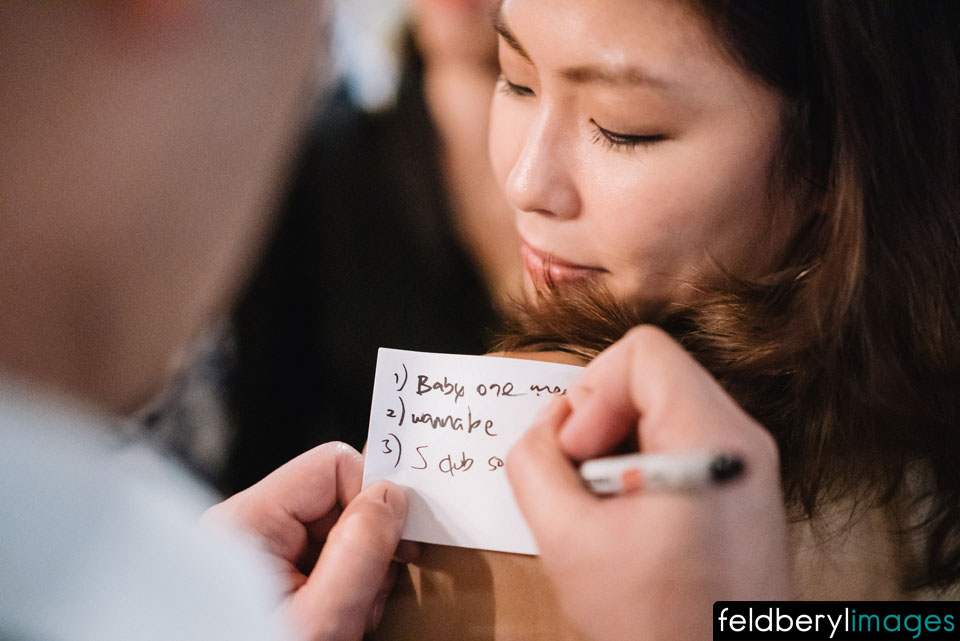 1) Baby one mo
2) wannabe
3) S club so
feldberylimages